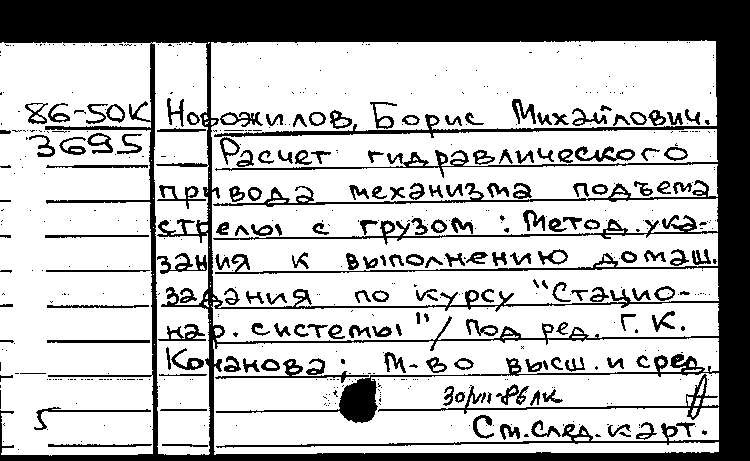 86-50К Новожилов, Борис Михайлович.
3695 Расчет гидравлического
привода механизма подъема
стрелы с грузом : Метод. ука-
зания к выполнению домаш.
задания по курсу "Стацио-
нар. системы" / Под ред. Г. К.
Кочанова; М-во высш. и сред.
30/VII-86 ЛК
5 См. след. карт.